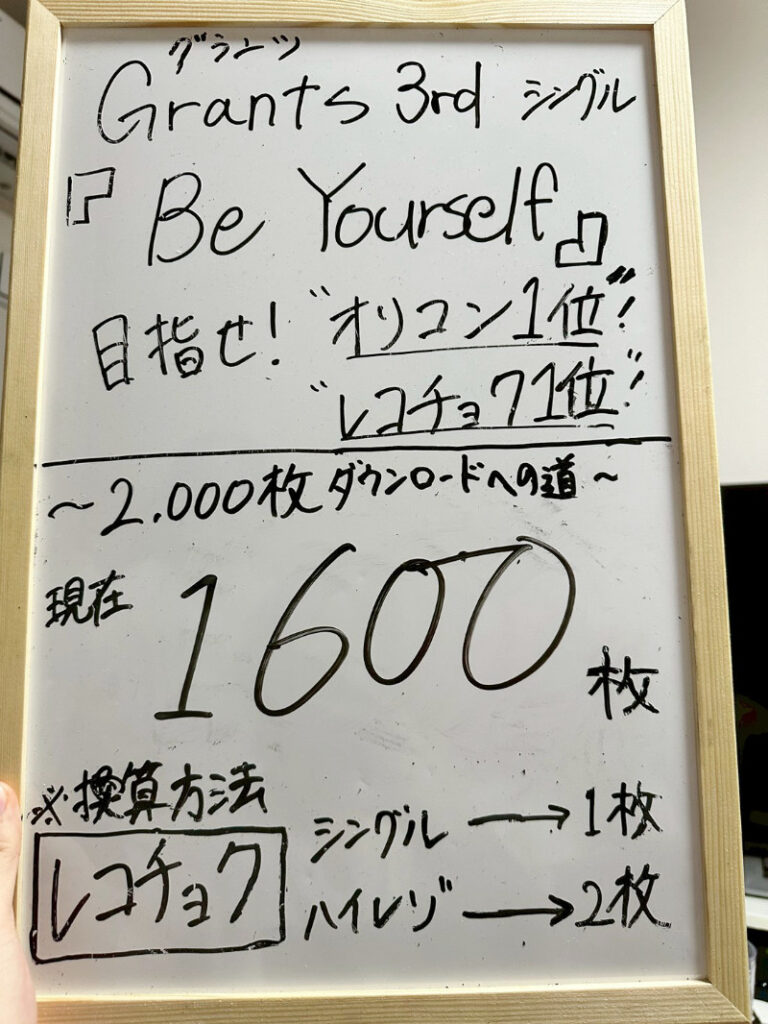 グランツ
Grants 3rd シングル
『Be Yourself』
目指せ! “オリコン1位”!
“レコチョク1位”!
~2.000枚ダウンロードへの道~
現在 1600枚
※換算方法
レコチョク
シングル → 1枚
ハイレゾ → 2枚